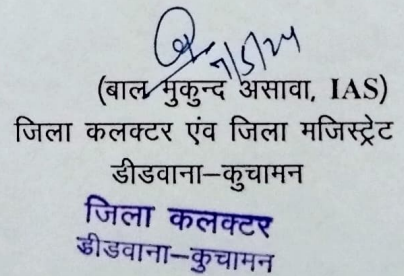 7/5/24
(बाल मुकुन्द असावा, IAS)
जिला कलक्टर एंव जिला मजिस्ट्रेट
डीडवाना–कुचामन
जिला कलक्टर
डीडवाना–कुचामन